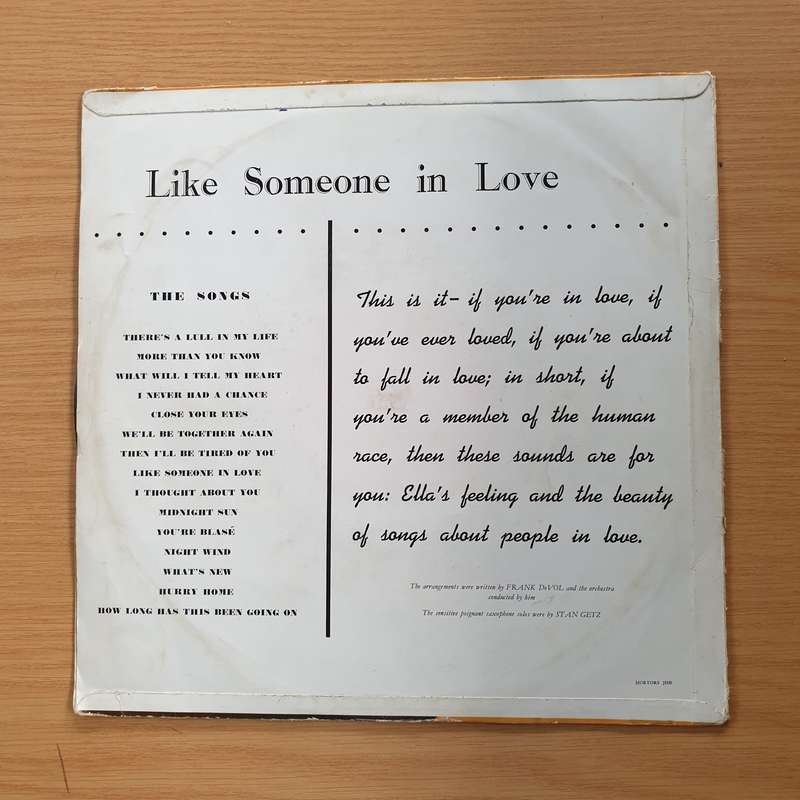 Like Someone in Love
THE SONGS
THERE'S A LULL IN MY LIFE
MORE THAN YOU KNOW
WHAT WILL I TELL MY HEART
I NEVER HAD A CHANCE
CLOSE YOUR EYES
WE'LL BE TOGETHER AGAIN
THEN I'LL BE TIRED OF YOU
LIKE SOMEONE IN LOVE
I THOUGHT ABOUT YOU
MIDNIGHT SUN
YOU'RE BLASÉ
NIGHT WIND
WHAT'S NEW
HURRY HOME
HOW LONG HAS THIS BEEN GOING ON
This is it – if you're in love, if
you've ever loved, if you're about
to fall in love; in short, if
you're a member of the human
race, then these sounds are for
you: Ella's feeling and the beauty
of songs about people in love.
The arrangements were written by FRANK DeVOL and the orchestra
conducted by him
The sensitive poignant saxophone solos were by STAN GETZ